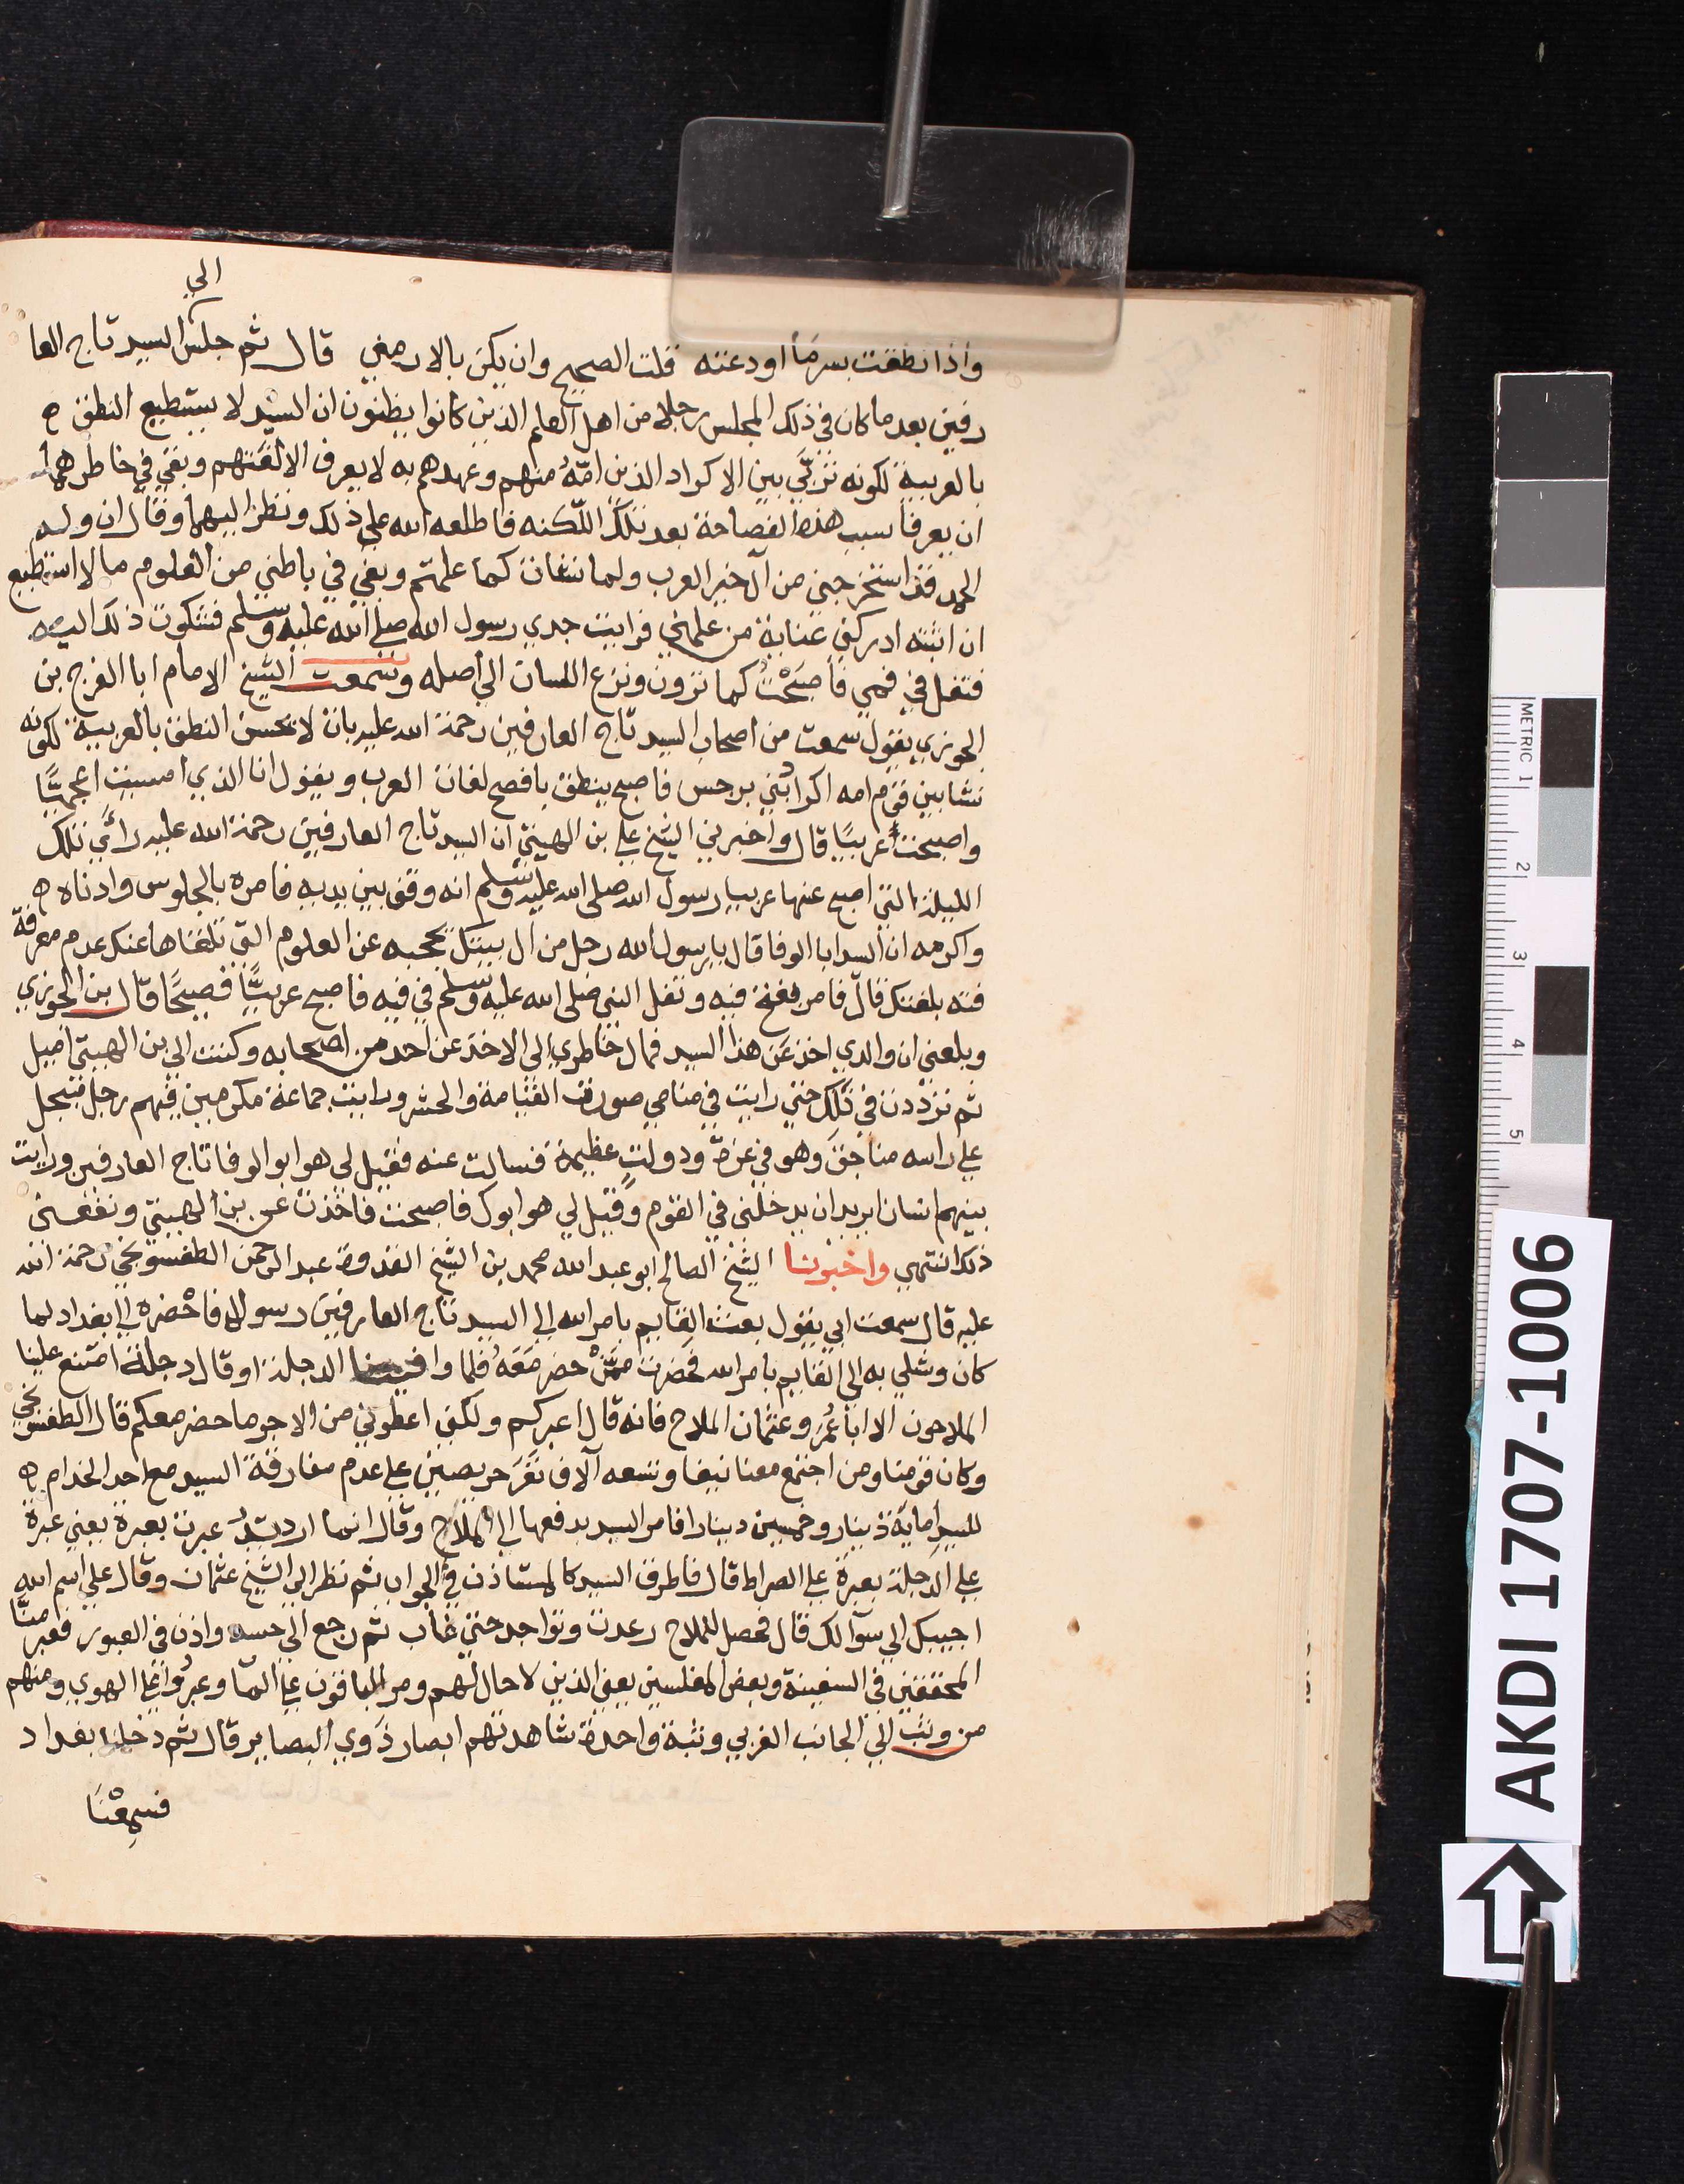 الي
واذا نطقت بسر ما اودعته قلت الصحيح وان يكن بالارمني قال ثم جلس السيد تاج العا
رفين بعد ما كان في ذلك المجلس رجلا من اهل العلم الذين كانوا يظنون ان السيد لا يستطيع النطق
بالعربية لكونه تربّي بين الاكراد الذين امّهُ منهم وعهدهم به لا يعرف الا لغتهم وبقي في خاطرهما
ان يعرفا سبب هذه الفصاحة بعد تلك اللّكنه فاطلعه الله علي ذلك ونظر اليهما وقال ان وله
الحمد قد استخرجني من آل خير العرب ولما نشات كما علمتم وبقي في باطني من العلوم مالا استطيع
ان ابثه ادركني عناية من علمني فرايت جدي رسول الله صلي الله عليه وسلم فشكوت ذلك اليه
فتفل في فمي فاصبَحْتُ كما ترون ونزع اللسان الي اصله وسمعت الشيخ الامام ابا الفرج بن
الجوزي يقول سمعت من اصحاب السيد تاج العارفين رحمة الله عليه بان لا يحسن النطق بالعربية لكونه
نشا بين قوم امه اكراد بني برجس فاصبح ينطق بافصح لغات العرب ويقول انا الذي امسيت اعجميًّا
واصبحت عربيًا قال واخبرني الشيخ علي بن الهيتي ان السيد تاج العارفين رحمة الله عليه رائي تلك
الليلة التي اصبح عنها عربيا رسول الله صلي الله عليه وسلم انه وقف بين يديه فامره بالجلوس وادناه
واكرمه ان السد ابا الوفا قال يا رسول الله رجل من ال بيتك تحجبه عن العلوم التي تلقناها عنك عدم معرفة
فته بلغتك قال فامر بفتح فيه وتفل النبي صلي الله عليه وسلم في فيه فاصبح عربيًّا فصيحًا قال بن الجوزي
وبلغني ان والدي اخذ عن هذا السيد فمال خاطري الي الاخذ عن احد من اصحابه وكنت الي بن الهيتي اميل
ثم ترددت في تلك حتي رايت في منامي صورت القيامة والحشر ورايت جماعة مكرمين فيهم رجل مبجل
علي راسه مناجق وهو في عزّ ودولت عظيمة فسالت عنه فقيل لي هو ابو الوفا تاج العارفين ورايت
بينهم انسان ايريد ان يدخلني في القوم وقيل لي هو ابوك فاصبحت فاخذت عن بن الهيتي ونفعني
ذلك انتهي واخبرنا الشيخ الصالح ابو عبد الله محمد بن الشيخ القدوة عبد الرحمن الطفسونجي رحمة الله
عليه قال سمعت ابي يقول بعث القايم بامر الله الي السيد تاج العارفين رسولا فاحْضره الي بغداد لما
كان وشلي به الي القايم بامر الله فحضرت ممّنْ حضر معَهُ فلما وافينا الدجلة او قال دجلة امتنع علينا
الملاحون الا ابا عُمَر وعثمان الملاح فانه قال اعبركم ولكني اعطوني من الاجر ما حضر معكم قال الطفسونجي
وكان قومنا ومن اجتمع معنا نيفا وتسعه آلاف نفر حريصين علي عدم مفارقة السيد مع احد الخدام
للسيد ماية دينار وخمسين دينارا فامر السيد بدفعها الي الملاح وقال انما اردت عبرت بعبرة يعني عبرة
علي الدجلة بعبرة علي الصراط قال فاطرق السيد كالمستاذن في الجواب ثم نظر الي الشيخ عثمان وقال علي اسم الله
اجيبك الي سوالك قال فحصل للملاح رعدت وتواجد حتي غاب ثم رجع الي حسه واذن في العبور فعبر منّا
المحققين في السفينة وبعض المفلسين يعني الذين لا حال لهم ومر الباقون علي الما وعبروا علي الهوي ومنهم
من وثب الي الجانب الغربي وثبة واحدة شاهدتهم ابصار ذوي البصاير قال ثم دخلنا بغداد
فسمعْنَا
METRIC 1 2 3 4 5
AKDI 1707-1006